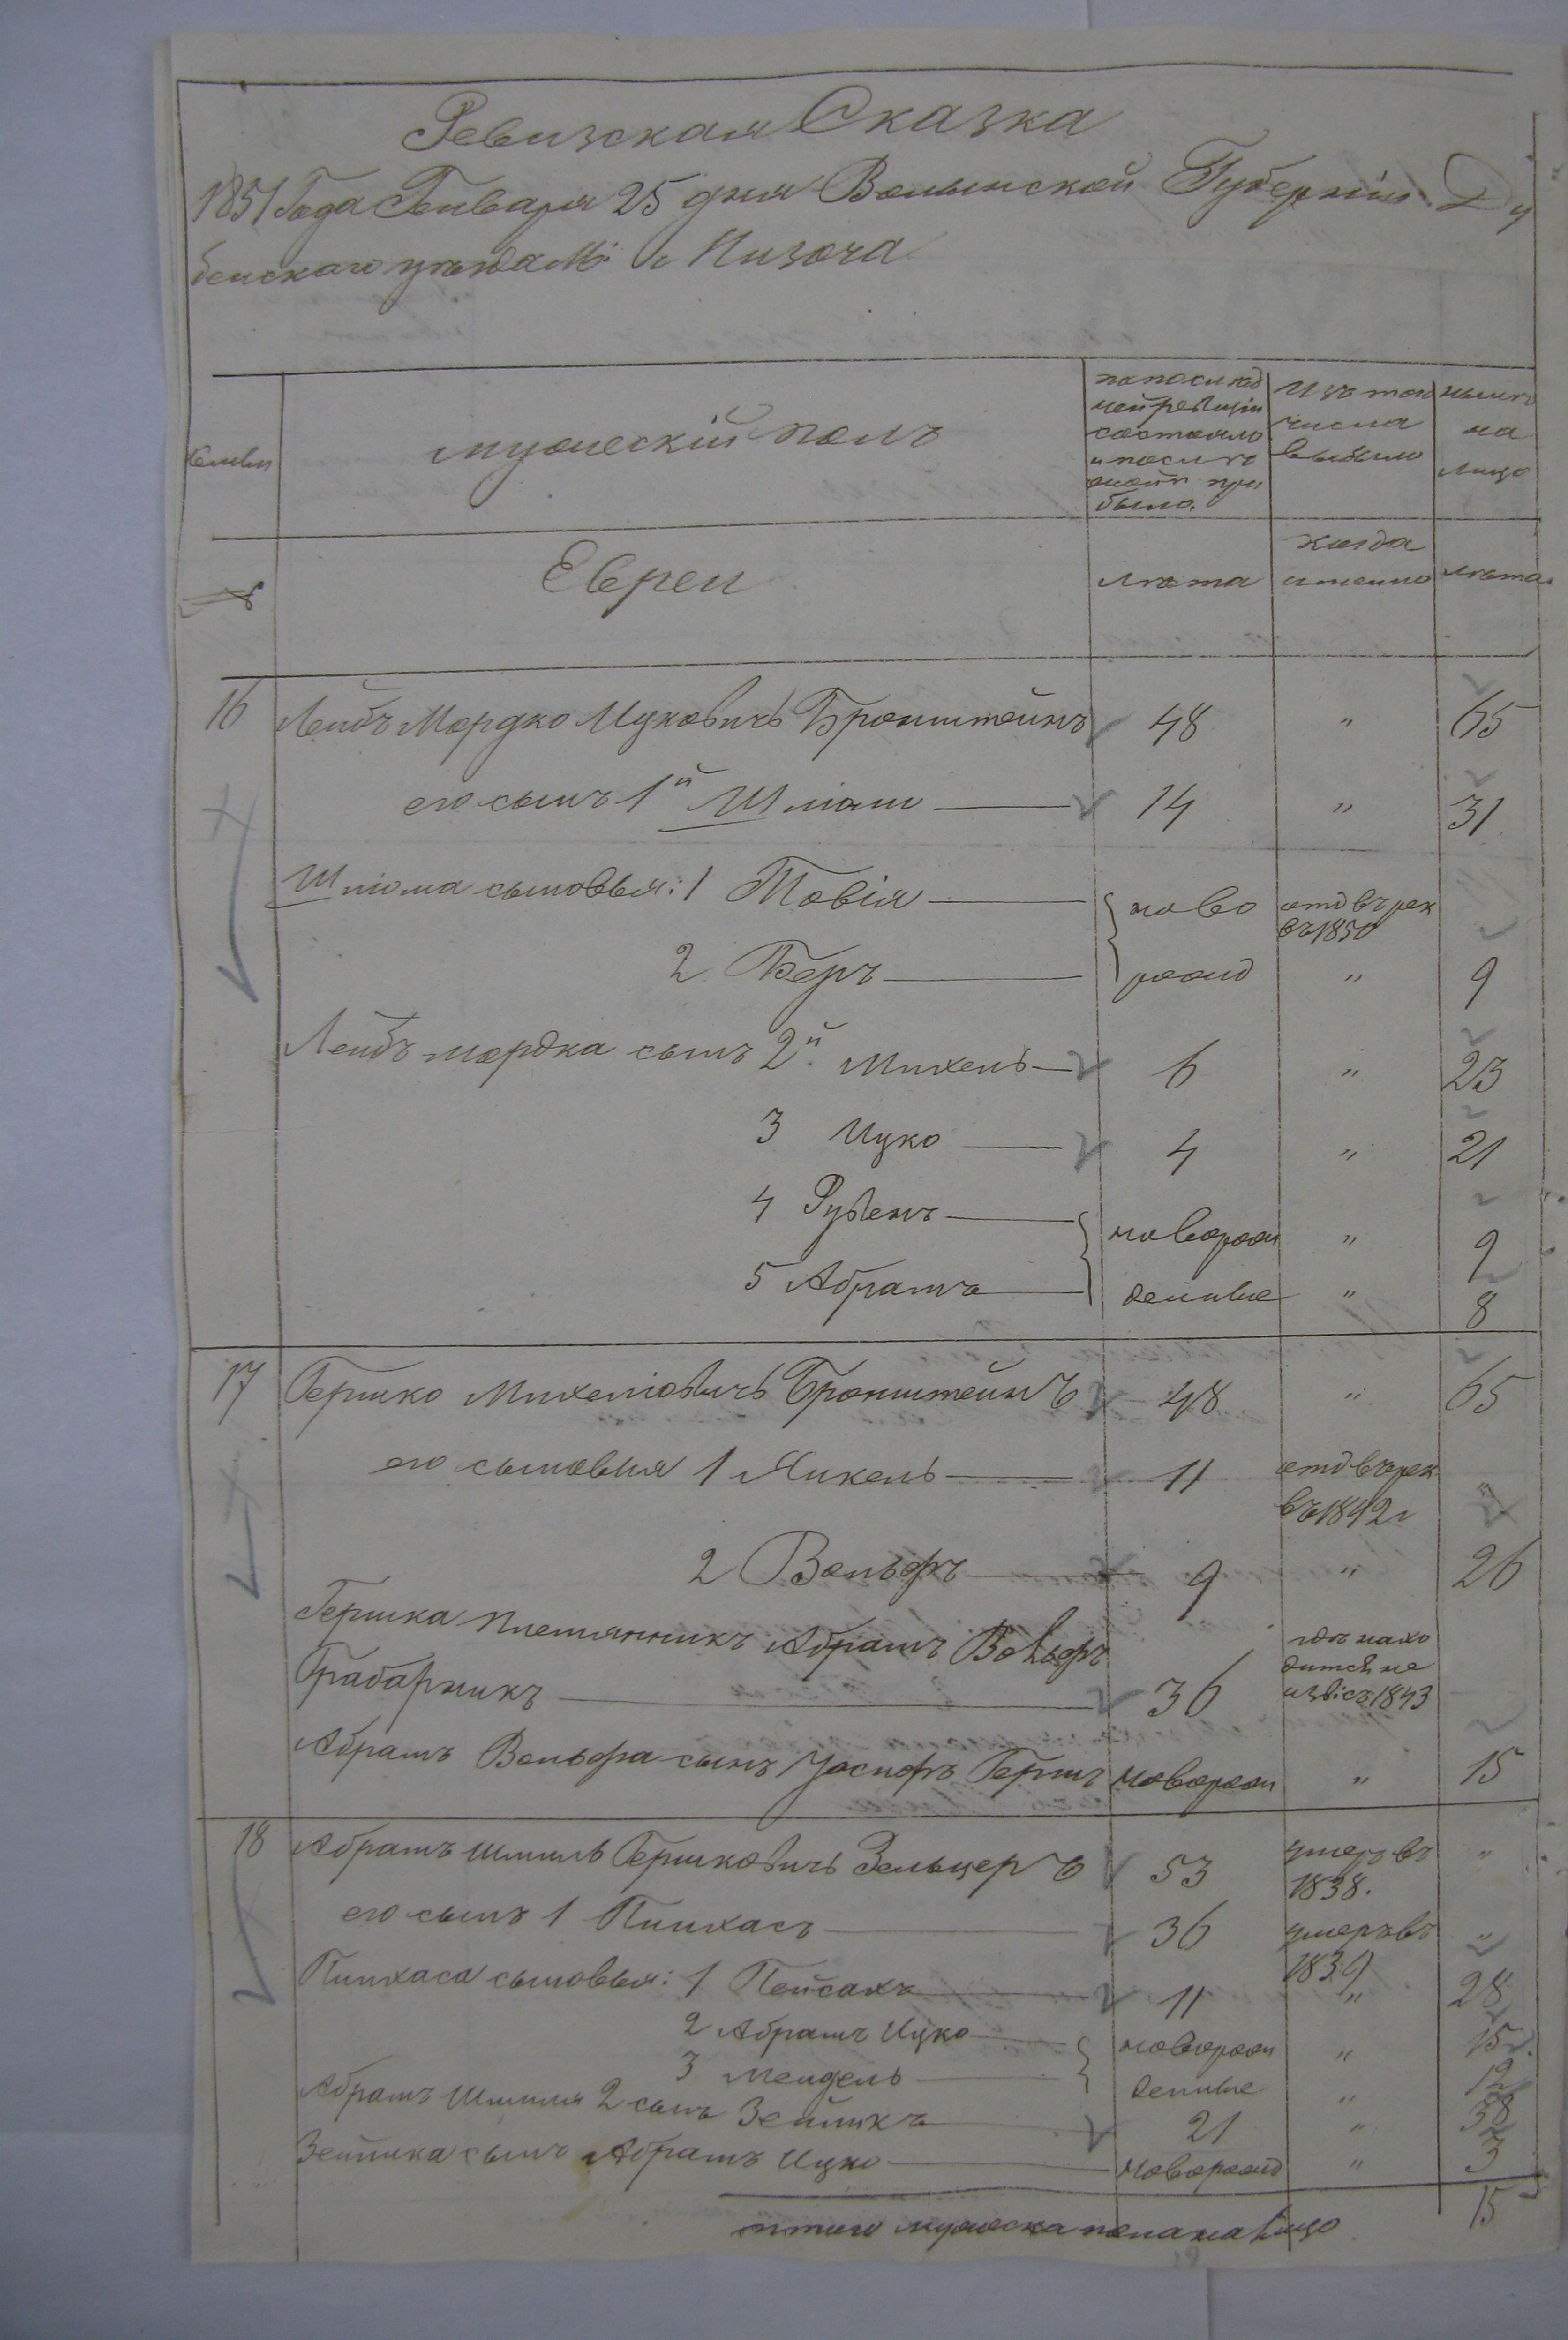 Ревизская Сказка
1851 Года Генваря 25 дня Волынской Губернiи Ду
бенскаго уѣзда М: Мизоча
семьи
мужескiй полъ
по послѣд
ней ревизiи
состояло
и послѣ
оной при
было.
Изъ того
числа
выбыло
нынѣ
на
лицо
№
Евреи
лѣта
когда
именно
лѣта
16 Лейбъ Мордко Ицковичъ Бронштейнъ 48 " 65
его сынъ 1й Шлiом 14 " 31
Шлiома сыновья: 1 Товiя ново отд въ рек
въ 1850
2 Беръ рожд " 9
Лейбъ мордка сынъ 2й Михель 6 " 23
3 Ицко 4 " 21
4 Рувенъ новорож " 9
5 Абрамъ денные " 8
17 Гершко Михелiовичъ Бронштейнъ 48 " 65
его сыновья 1 Янкель 11 отд въ рек "
въ 1842г
2 Вольфъ 9 " 26
Гершка племянникъ Абрамъ Вольфъ гдѣ нахо
Грабарникъ 36 дится не
извѣс 1843
Абрамъ Вольфа сынъ Iосифъ Гершъ новорож " 15
18 Абрамъ Шмиль Гершковичъ Зельцеръ 53 умеръ въ "
1838.
его сынъ 1 Пинхасъ 36 умеръ въ "
1839
Пинхаса сыновья: 1 Пейсахъ 11 " 28
2 Абрамъ Ицко новорож " 15
3 Мендель денные " 12
Абрамъ Шмиля 2 сынъ Зейликъ 21 " 38
Зейлика сынъ Абрамъ Ицко новорожд " 3
итого мужеска пола на лицо 15